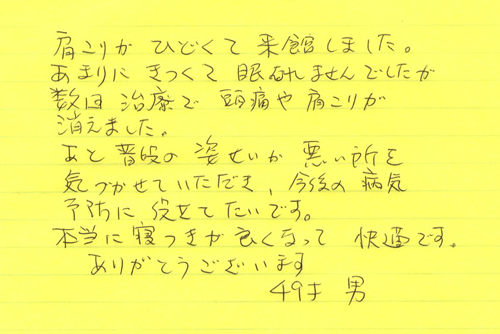 肩こりが ひどくて 来館しました。
あまりに きつくて 眠れませんでしたが
数回 治療で 頭痛や 肩こりが
消えました。
あと 普段の 姿せいが 悪い所を
気づかせていただき、今後の 病気
予防に 役立てたいです。
本当に 寝つきが 良くなって 快適です。
ありがとうございます
49才 男